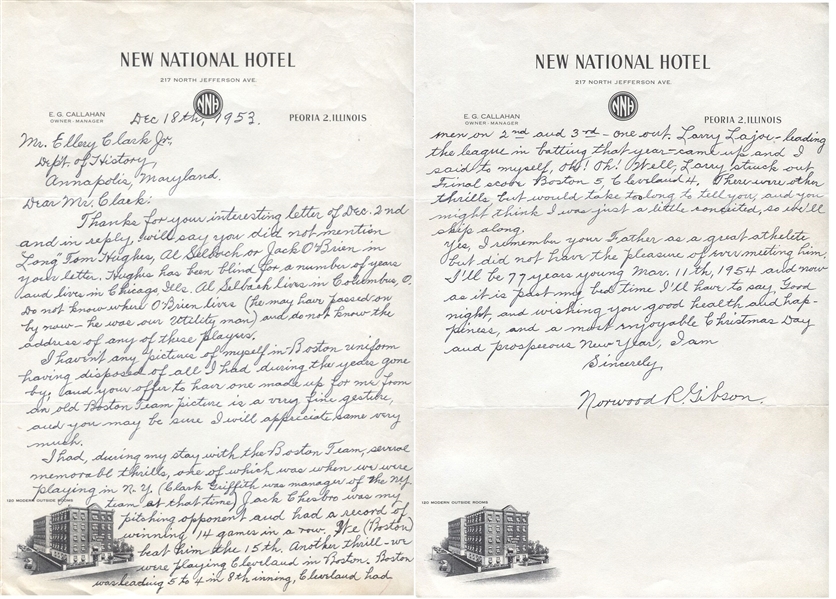 NEW NATIONAL HOTEL
217 NORTH JEFFERSON AVE.
NNH
E. G. CALLAHAN
OWNER - MANAGER
PEORIA 2, ILLINOIS
Dec 18th, 1953.
Mr. Ellery Clark Jr,
Dept. of History,
Annapolis, Maryland.
Dear Mr. Clark:
Thanks for your interesting letter of Dec. 2nd
and in reply, will say you did not mention
Long Tom Hughes, Al Selbach or Jack O'Brien in
your letter. Hughes has been blind for a number of years
and lives in Chicago Ills. Al Selbach lives in Columbus, O.
Do not know where O'Brien lives (he may have passed on
by now - he was our Utility man) and do not know the
address of any of these players.
I haven't any pictures of myself in Boston uniform
having disposed of all I had during the years gone
by, and your offer to have one made up for me from
an old Boston Team picture is a very fine gesture,
and you may be sure I will appriciate same very
much.
I had, during my stay with the Boston Team, several
memorable thrills, one of which was when we were
playing in N.Y. (Clark Griffith was manager of the NY
team at that time) Jack Chesbro was my
pitching opponent and had a record of
winning 14 games in a row. We (Boston)
beat him the 15th. Another thrill - we
were playing Cleveland in Boston. Boston
was leading 5 to 4 in 8th inning, Cleveland had
120 MODERN OUTSIDE ROOMS
NEW NATIONAL HOTEL
217 NORTH JEFFERSON AVE.
NNH
E. G. CALLAHAN
OWNER - MANAGER
PEORIA 2, ILLINOIS
men on 2nd and 3rd - one out. Larry Lajoe - leading
the league in batting that year - came up and I
said to myself, Oh! Oh! Well, Larry struck out
Final score Boston 5, Cleveland 4. There were other
thrills but would take too long to tell you, and you
might think I was just a little conceited, so we'll
skip along.
Yes, I remember your Father as a great athelete
but did not have the pleasure of ever meeting him.
I'll be 77 years young Mar. 11th, 1954 and now
as it is past my bed time I'll have to say Good
night, and wishing you good health and hap-
piness, and a most enjoyable Christmas Day
and prosperous New Year, I am
Sincerely,
Norwood R. Gibson.
120 MODERN OUTSIDE ROOMS